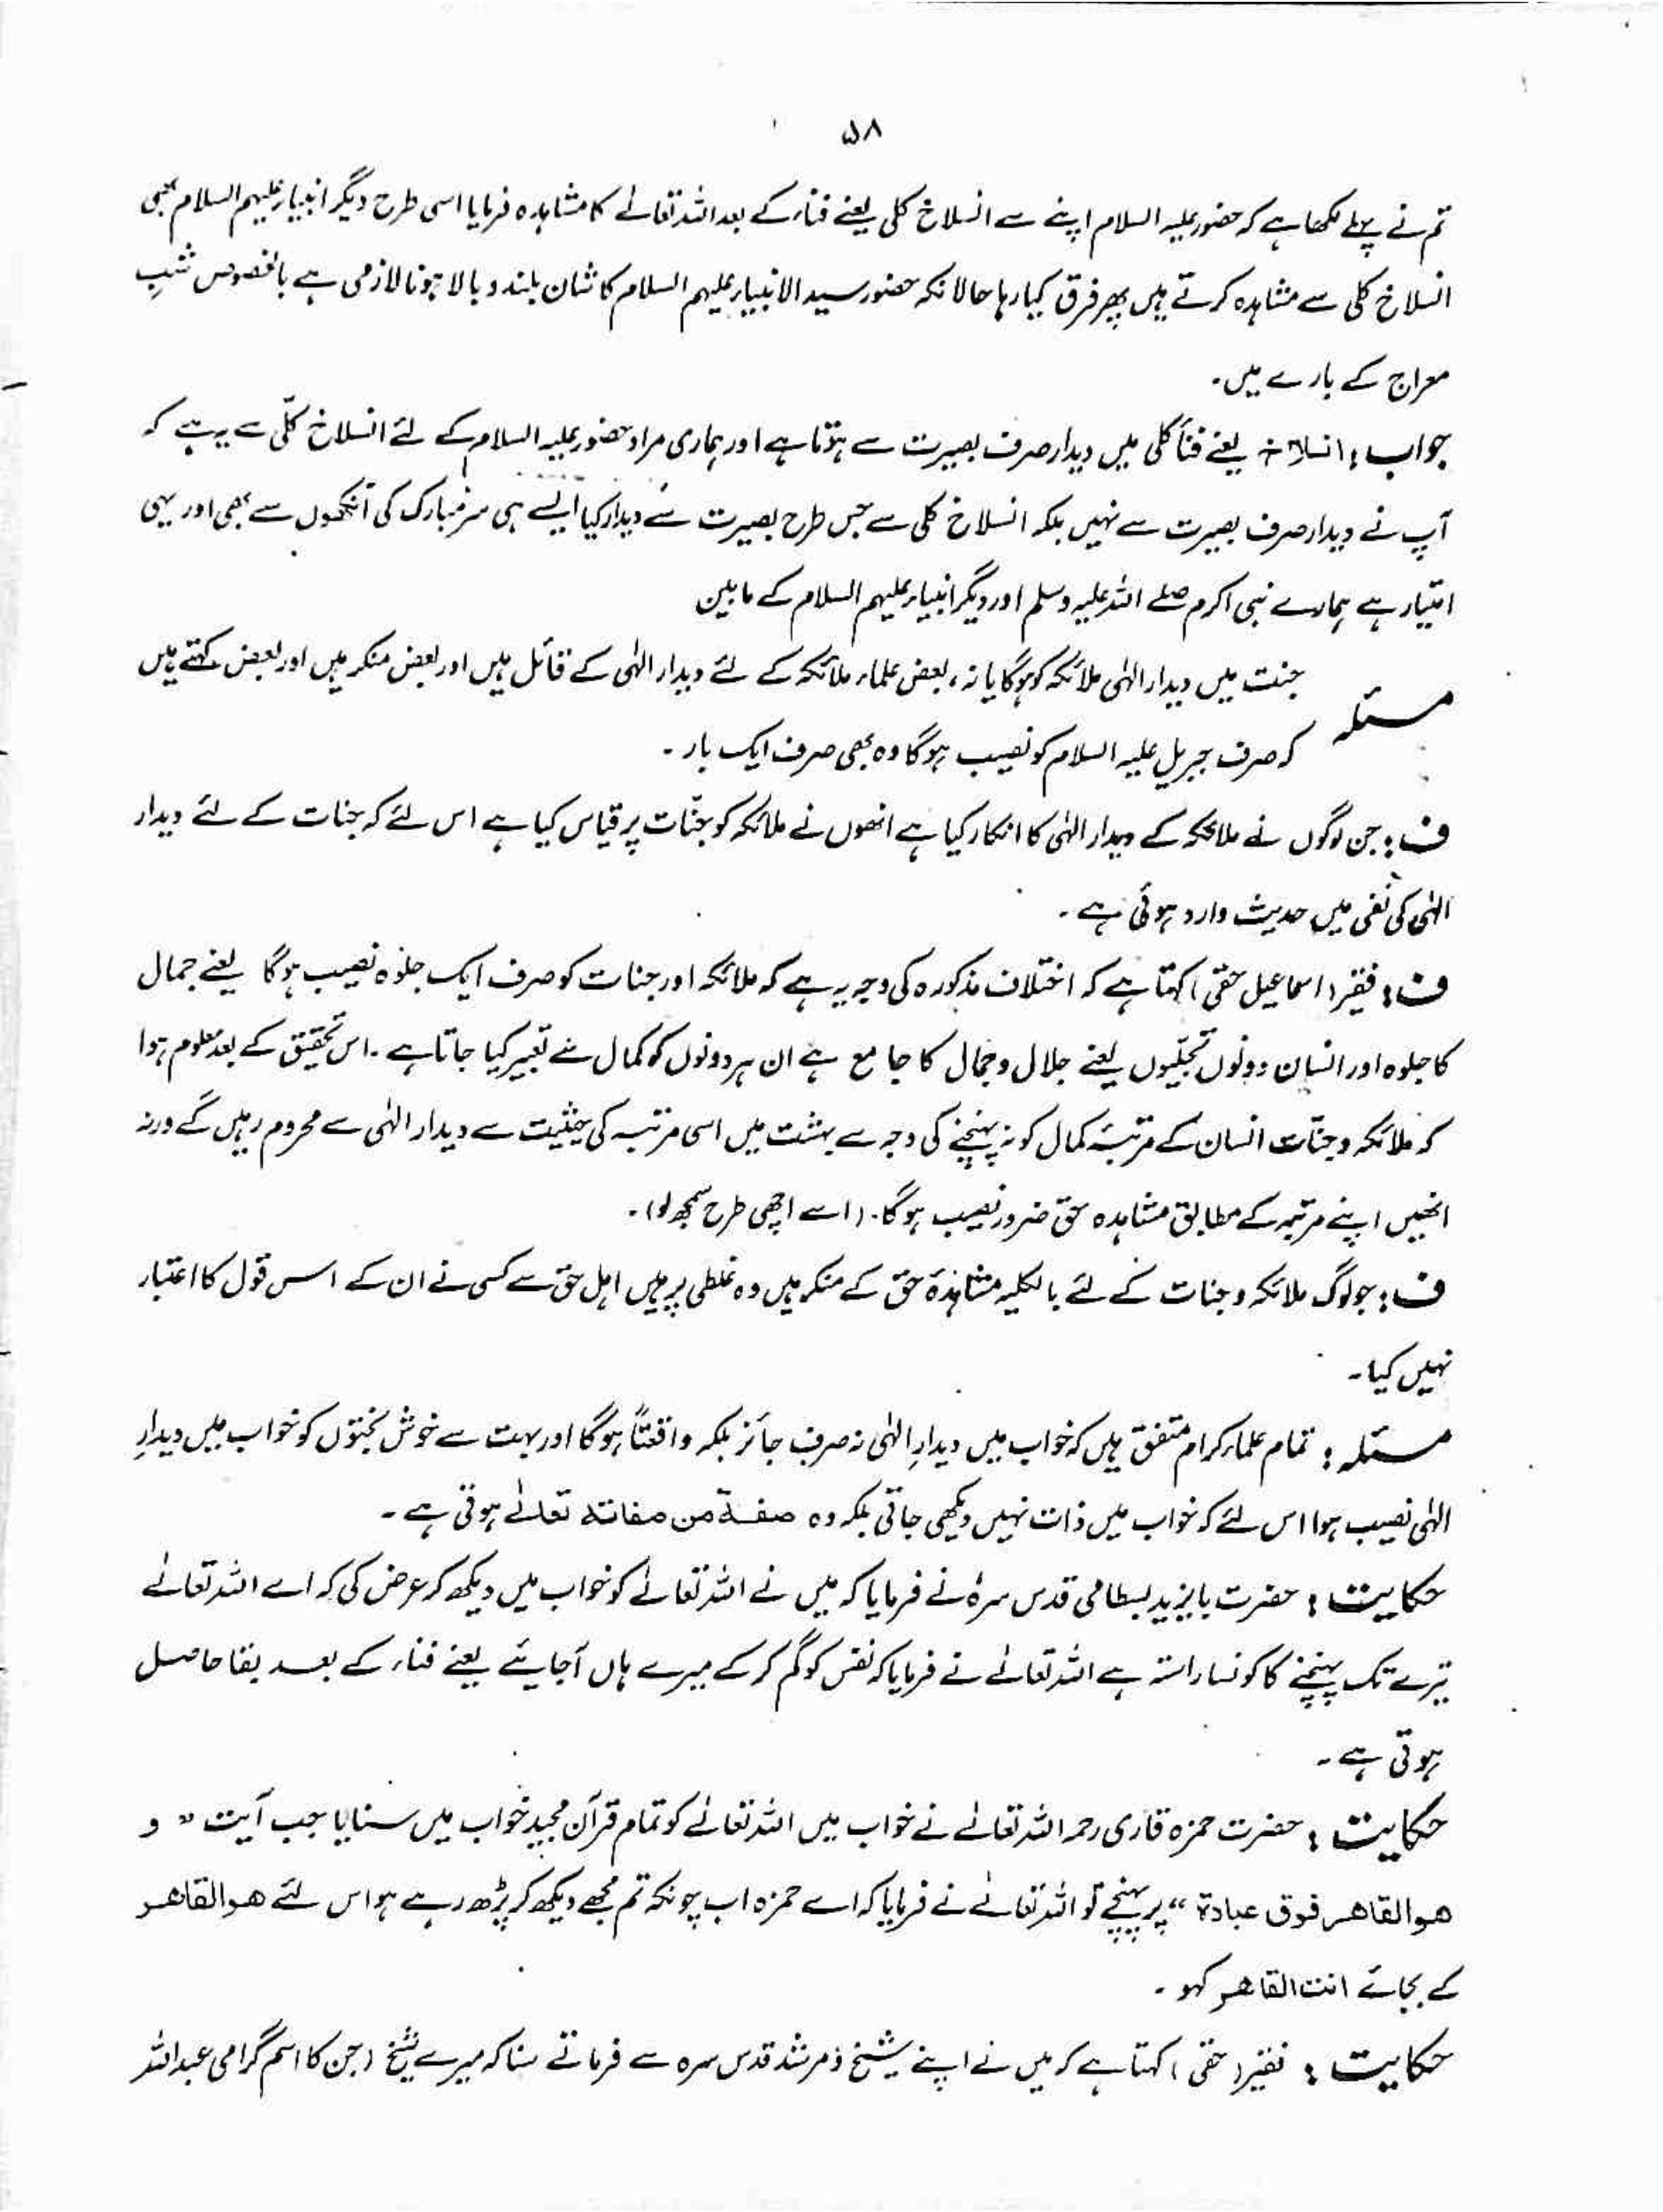 ۵۸
تم نے پہلے لکھا ہے کہ حضور علیہ السلام اپنے سے انسلاخ کلی یعنے فناء کے بعد اللہ تعالےٰ کا مشاہدہ فرمایا اسی طرح دیگر انبیاء علیہم السلام بھی
انسلاخ کلی سے مشاہدہ کرتے ہیں پھر فرق کیا رہا حالانکہ حضور سید الانبیاء علیہم السلام کا شان بلند و بالا ہونا لازمی ہے بالخصوص شبِ
معراج کے بارے میں۔
جواب : انسلاخ یعنے فنأ کلی میں دیدار صرف بصیرت سے ہوتا ہے اور ہماری مراد حضور علیہ السلام کے لئے انسلاخ کلّی سے یہ ہے کہ
آپ نے دیدار صرف بصیرت سے نہیں بلکہ انسلاخ کلی سے جس طرح بصیرت سے دیدار کیا ایسے ہی سر مبارک کی آنکھوں سے بھی اور یہی
امتیاز ہے ہمارے نبی اکرم صلے اللہ علیہ وسلم اور دیگر انبیاء علیہم السلام کے مابین
مسئلہ جنت میں دیدار الہٰی ملائکہ کو ہوگا یا نہ ، بعض علماء ملائکہ کے لئے دیدار الہٰی کے قائل ہیں اور بعض منکر ہیں اور بعض کہتے ہیں
کہ صرف جبریل علیہ السلام کو نصیب ہوگا وہ بھی صرف ایک بار ۔
ف : جن لوگوں نے ملائکہ کے دیدار الہٰی کا انکار کیا ہے انھوں نے ملائکہ کو جنّات پر قیاس کیا ہے اس لئے کہ جنات کے لئے دیدار
الہٰی کی نفی میں حدیث وارد ہوئی ہے ۔
ف : فقیر ( اسماعیل حقی ) کہتا ہے کہ اختلاف مذکورہ کی وجہ یہ ہے کہ ملائکہ اور جنات کو صرف ایک جلوہ نصیب ہوگا یعنے جمال
کا جلوہ اور انسان دونوں تجلّیوں یعنے جلال و جمال کا جامع ہے ان ہر دونوں کو کمال سے تعبیر کیا جاتا ہے ۔ اس تحقیق کے بعد معلوم ہوا
کہ ملائکہ و جنّات انسان کے مرتبۂ کمال کو نہ پہنچنے کی وجہ سے بہشت میں اسی مرتبہ کی حیثیت سے دیدار الہٰی سے محروم رہیں گے ورنہ
انھیں اپنے مرتبہ کے مطابق مشاہدہ حق ضرور نصیب ہوگا ۔ ( اسے اچھی طرح سمجھ لو ) ۔
ف : جو لوگ ملائکہ و جنات کے لئے بالکلیہ مشاہدۂ حق کے منکر ہیں وہ غلطی پر ہیں اہل حق سے کسی نے ان کے اس قول کا اعتبار
نہیں کیا ۔
مسئلہ : تمام علماء کرام متفق ہیں کہ خواب میں دیدارِ الہٰی نہ صرف جائز بلکہ واقعتاً ہوگا اور بہت سے خوش بختوں کو خواب میں دیدارِ
الہٰی نصیب ہوا اس لئے کہ خواب میں ذات نہیں دیکھی جاتی بلکہ وہ صفۃ من صفاتہ تعالےٰ ہوتی ہے ۔
حکایت : حضرت بایزید بسطامی قدس سرہٗ نے فرمایا کہ میں نے اللہ تعالےٰ کو خواب میں دیکھ کر عرض کی کہ اے اللہ تعالےٰ
تیرے تک پہنچنے کا کونسا راستہ ہے اللہ تعالےٰ نے فرمایا کہ نفس کو گم کر کے میرے ہاں آجایئے یعنے فناء کے بعد بقا حاصل
ہوتی ہے ۔
حکایت : حضرت حمزہ قاری رحمہ اللہ تعالےٰ نے خواب میں اللہ تعالےٰ کو تمام قرآن مجید خواب میں سنایا جب آیت " و
ھو القاھر فوق عبادۃ " پر پہنچے تو اللہ تعالےٰ نے فرمایا کہ اے حمزہ اب چونکہ تم مجھے دیکھ کر پڑھ رہے ہو اس لئے ھو القاھر
کے بجائے انت القاھر کہو ۔
حکایت : فقیر ( حقی ) کہتا ہے کہ میں نے اپنے شیخ و مرشد قدس سرہ سے فرماتے سنا کہ میرے شیخ ( جن کا اسم گرامی عبداللہ